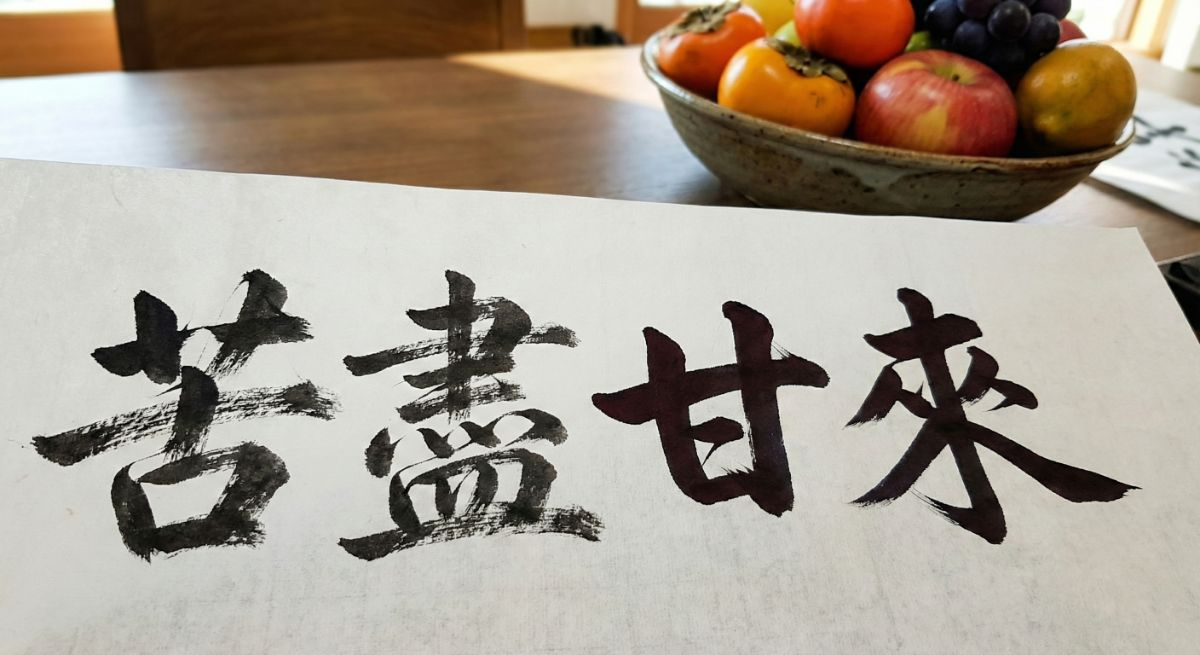 苦盡甘來